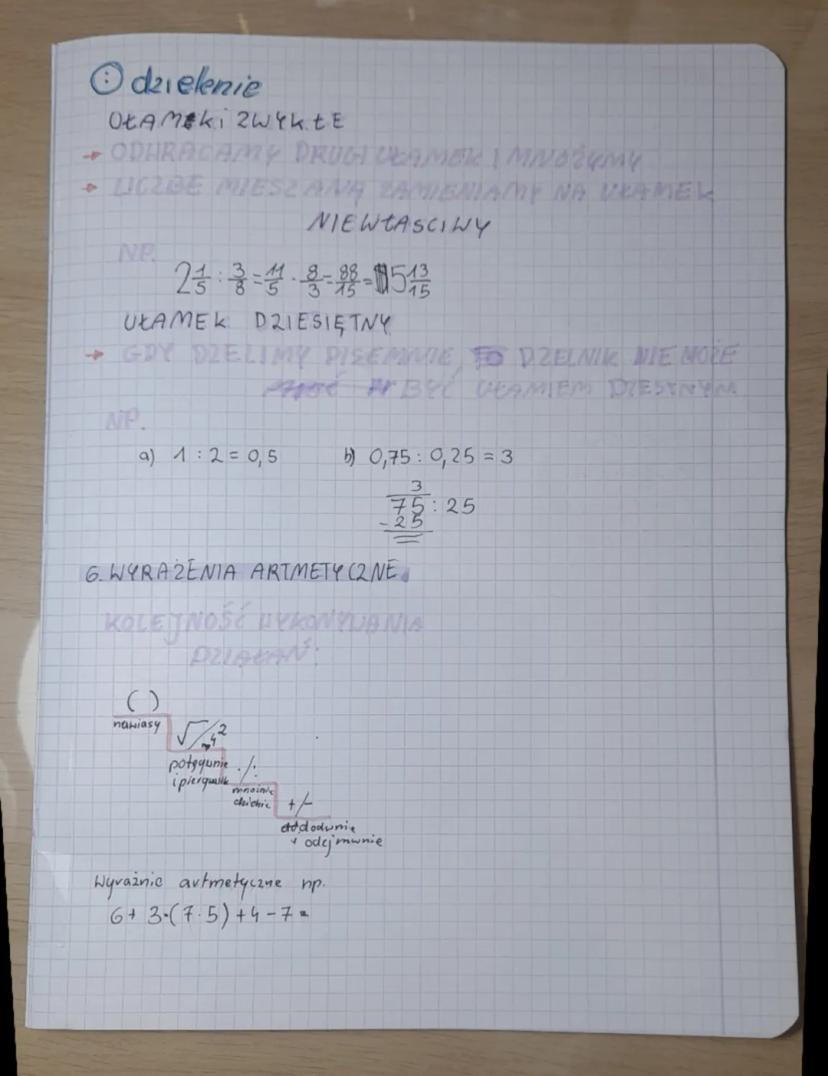 : dzielenie
UŁAMKI ZWYKŁE
→ ODWRACAMY DRUGI UŁAMEK I MNOŻYMY
→ LICZBĘ MIESZANĄ ZAMIENIAMY NA UŁAMEK
NIEWŁASCIWY
NP.
2 1/5 : 3/8 = 11/5 · 8/3 = 88/15 = 5 13/15
UŁAMEK DZIESIĘTNY
→ GDY DZELIMY PISEMNIE, TO DZELNIK NIE MOŻE
BYĆ UŁAMIEM DZIESTNYM
NP.
a) 1 : 2 = 0,5 b) 0,75 : 0,25 = 3
3
75 : 25
- 25
6. WYRAŻENIA ARTMETYCZNE.
KOLEJNOŚĆ WYKONYWANIA
DZIAŁAŃ:
( )
nawiasy
√ / 4²
potęgunie
i pierq
· / :
mnożnie
dzielnie
+ / -
dodawnie
+ odejmwnie
Wyrażnie artmetyczne np.
6 + 3·(7·5) + 4 - 7 =